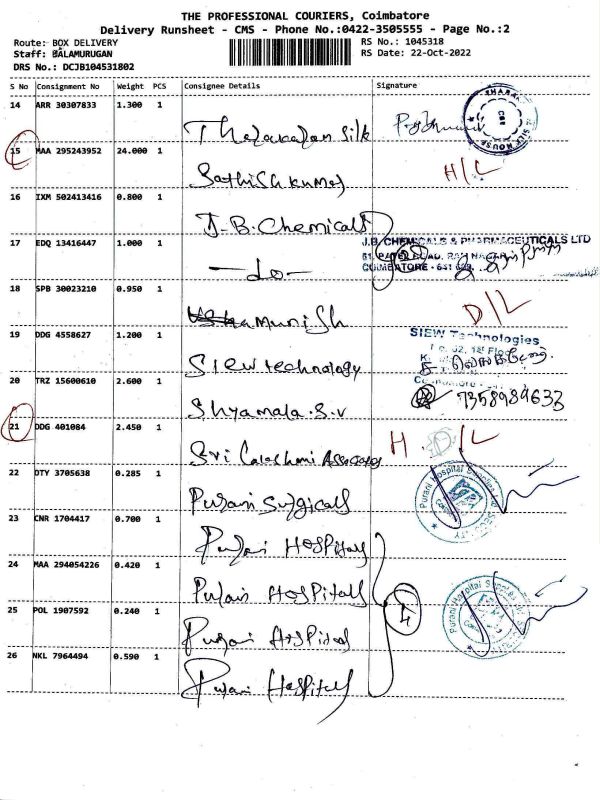 THE PROFESSIONAL COURIERS, Coimbatore
Delivery Runsheet - CMS - Phone No.:0422-3505555 - Page No.:2
Route: BOX DELIVERY
RS No.: 1045318
Staff: BALAMURUGAN
RS Date: 22-Oct-2022
DRS No.: DCJB104531802
S No Consignment No Weight PCS Consignee Details Signature
14 ARR 30307833 1.300 1
silk
15 MAA 295243952 24.000 1
Sathishkumar H/L
16 IXM 502413416 0.800 1
J.B. Chemicals
17 EDQ 13416447 1.000 1
J.B. CHEMICALS & PHARMACEUTICALS LTD
-do-
COIMBATORE - 641
18 SPB 30023210 0.950 1
Munish D/L
19 DDG 4558627 1.200 1
SIEW Technologies
SIEW technology
20 TRZ 15600610 2.600 1
Shyamala.S.V 7358989633
21 DDG 401084 2.450 1
Sri H. /L
22 DTY 3705638 0.285 1
Purani Surgicals
Purani Hospital Supplies
23 CNR 1704417 0.700 1
Purani Hospitals
24 MAA 294054226 0.420 1
Purani Hospitals
25 POL 1907592 0.240 1
Purani Hospital
Purani Hospital
26 NKL 7964494 0.590 1
Purani Hospitals